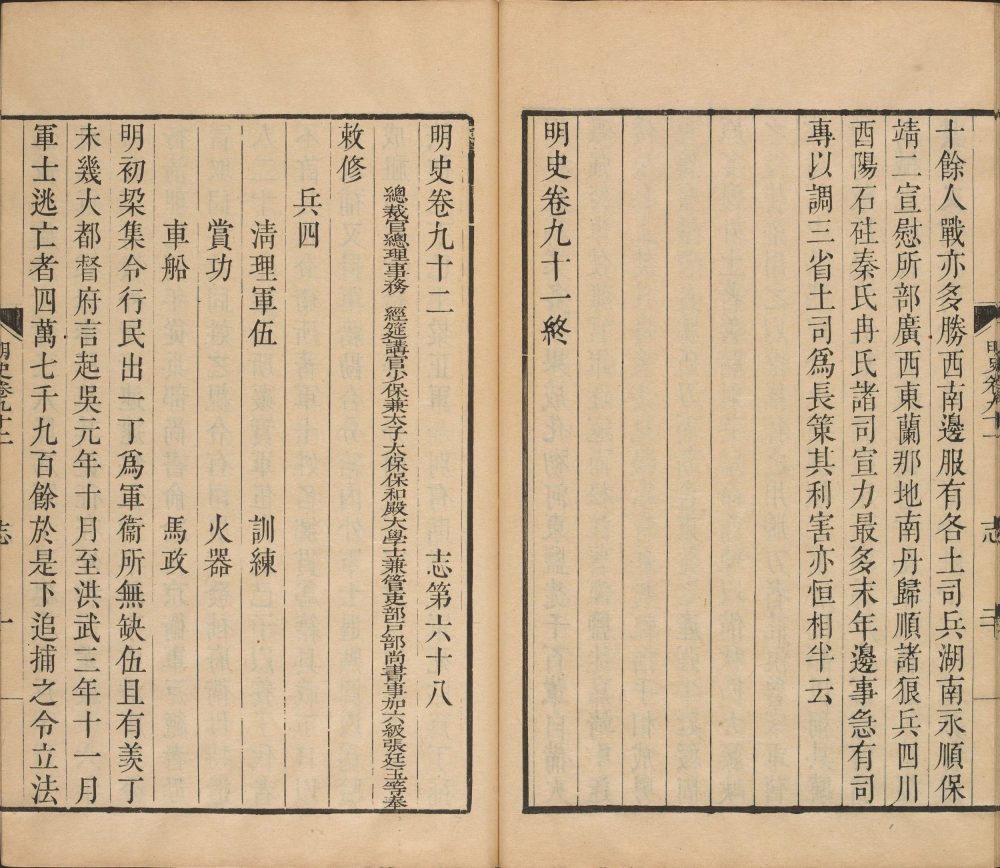 十餘人戰亦多勝西南邊服有各土司兵湖南永順保
靖二宣慰所部廣西東蘭那地南丹歸順諸狼兵四川
酉陽石砫秦氏冉氏諸司宣力最多末年邊事急有司
專以調三省土司爲長策其利害亦恒相半云
明史卷九十一終
明史卷九十一
志
三
明史卷九十二 志第六十八
總裁官總理事務 經筵講官少保兼太子太保保和殿大學士兼管吏部戶部尚書事加六級張廷玉等奉
敕修
兵四
淸理軍伍 訓練
賞功 火器
車船 馬政
明初垜集令行民出一丁爲軍衞所無缺伍且有羨丁
未幾大都督府言起吳元年十月至洪武三年十一月
軍士逃亡者四萬七千九百餘於是下追捕之令立法
明史卷九十二
志
一